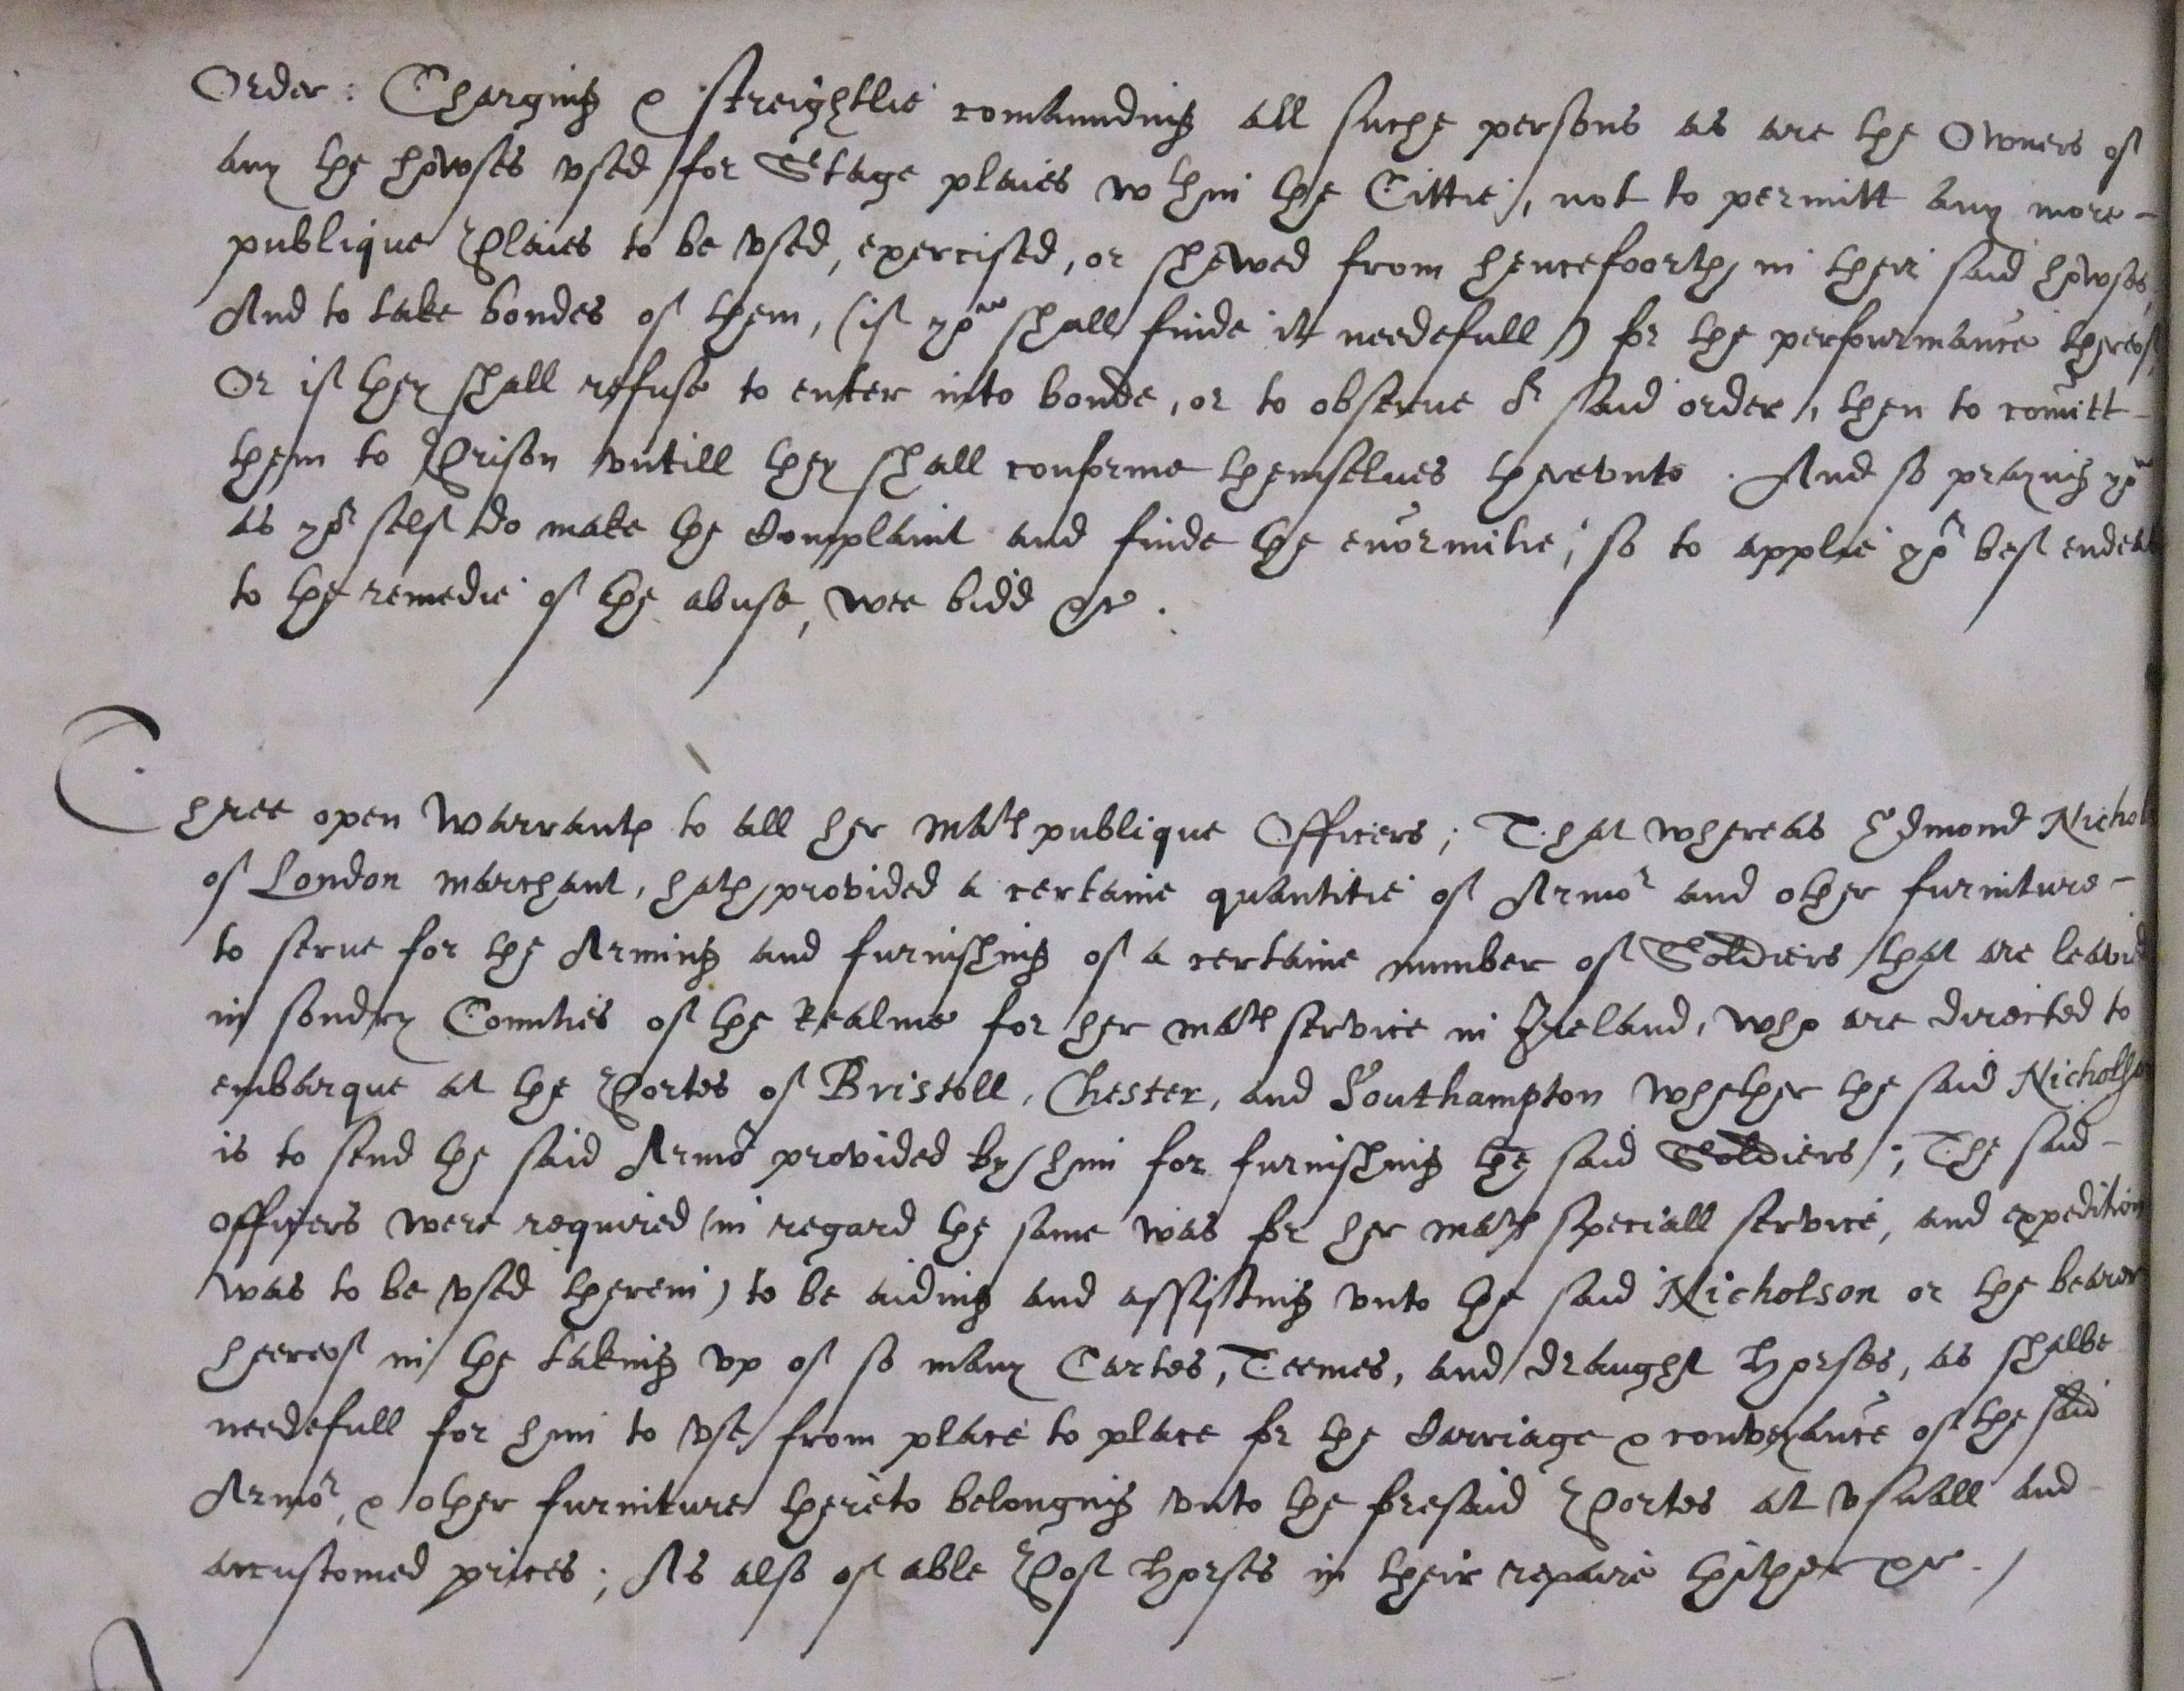 Order: Charging & streightlie comaunding all suche persons as are the Owners of
any the howses vsed for Stage plaies wthin the Cittie, not to permitt any more
publique Plaies to be vsed, exercised, or shewed from hencefoorth in their said howses,
And to take bondes of them, (if yow shall finde it needefull) for the perfourmance thereof,
Or if they shall refuse to enter into bonde, or to observe or said order, then to comitt
them to Prison vntill they shall conforme themselves therevnto. And so praying yow
as yor self do make the Complaint and finde the enormitie, so to applie yor best endea
to the remedie of the abuse, wee bidd &c.
Three open Warrants to all her Mats publique Officers; That whereas Edmond Nichol
of London marchant, hath provided a certaine quantitie of Armor and other furniture
to serue for the Arming and furnishing of a certaine number of Soldiers that are leavied
in sondry Counties of the Realme for her mats service in Ireland, who are directed to
embarque at the Portes of Bristoll, Chester, and Southampton whether the said Nicholson
is to send the said Armor provided by him for furnishing the said Soldiers; The said
officers were required (in regard the same was for her mats speciall service, and expedition
was to be vsed therein) to be aiding and assisting vnto the said Nicholson or the bearer
heereof in the taking vp of so many Cartes, Teemes, and draught Horses, as shalbe
needefull for him to vse from place to place for the Carriage & conveyance of the said
Armor, & other furniture thereto belonging vnto the foresaid Portes at vsuall and
accustomed prices; As also of able Post Horses in their repaire thither &c.